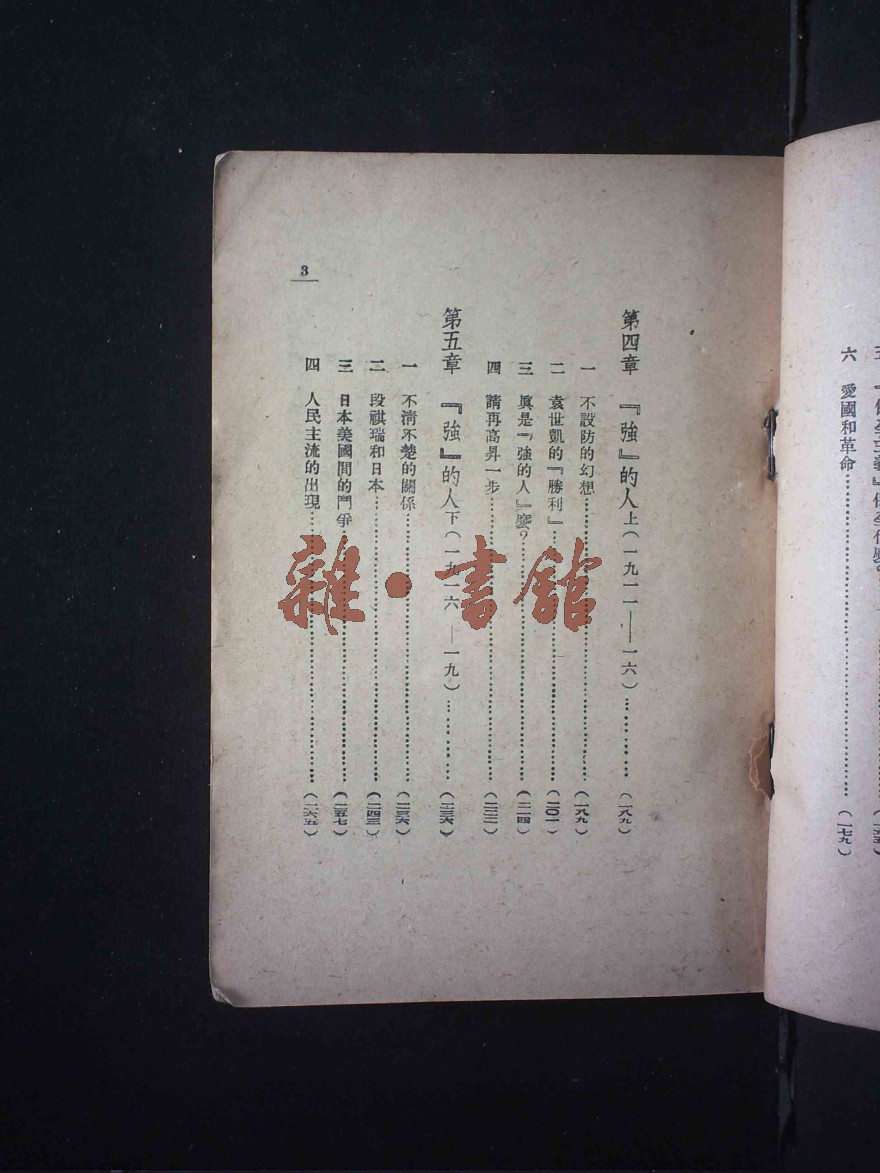 五
六 愛國和革命……(一七九)
第四章 『強』的人上(一九一一——一六)……(一八九)
一 不設防的幻想……(一八九)
二 袁世凱的『勝利』……(二〇一)
三 真是『強的人』麼?……(二一四)
四 請再高昇一步……(二二二)
第五章 『強』的人下(一九一六——一九)……(二三六)
一 不清不楚的關係……(二三六)
二 段祺瑞和日本……(二四三)
三 日本美國間的鬥爭……(二五七)
四 人民主流的出現……(二六五)
3
雜·書館